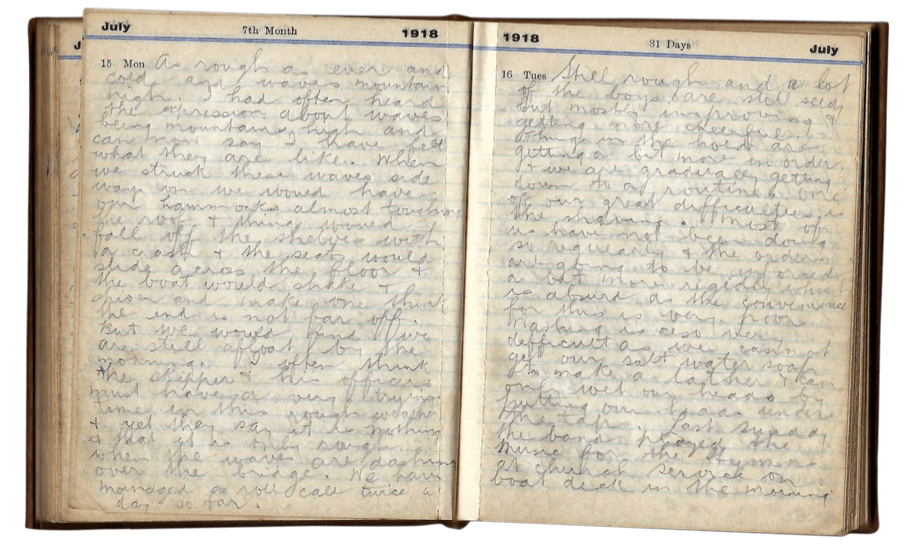 July 7th Month 1918
15 Mon As rough as ever and
cold and waves mountain
high. I had often heard
the expression about waves
being mountains high and
can now say I have felt
what they are like. When
we struck these waves side
ways on we would have
our hammocks almost touching
the roof & things would
fall off the shelves with
a crash & the seats would
slide across the floor &
the boat would shake &
and make one think
the end is not far off.
But we would find we
are still afloat by the
morning. I often think
the skipper & his officers
must have a very trying
time in this rough weather
& yet they say it is nothing
& that it is only rough
when the waves are dashing
over the bridge. We have
managed a roll call twice a
day so far.
1918 31 Days July
16 Tues Still rough and a lot
of the boys are still seedy
but mostly improving &
getting more cheerful.
things in the are
getting a bit more in order
& we are gradually getting
down to a routine. One
of our great difficulties is
the shaving. Most of
us have not been doing
so regularly & the orders
are going to be enforced
a bit more rigidly which
is absurd as the convenience
for this is very poor.
Washing is also very
difficult as we cannot
get our salt water soap
to make a lather & can
only wet our heads by
putting our heads under
the taps. Last Sunday
the band played the
music for the Hymns
at church service on
boat deck in the morning